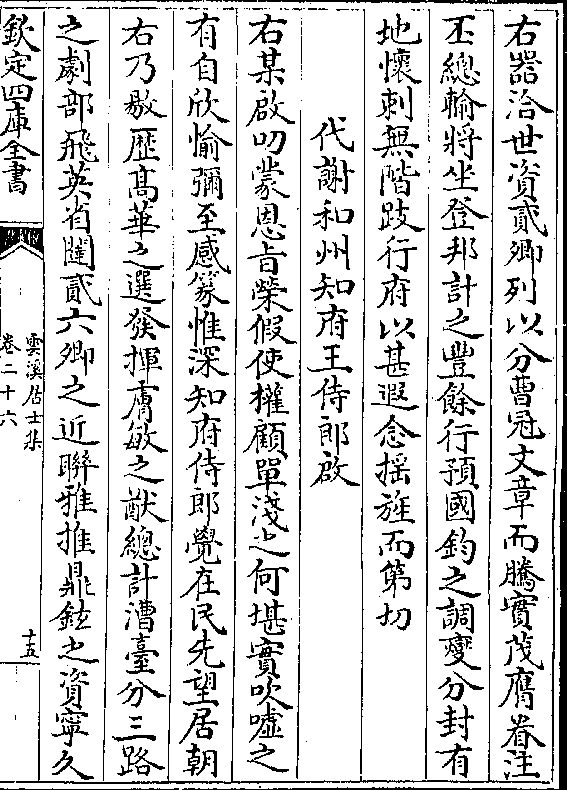 右器洽世資貳卿列以分曹冠文章而騰實茂膺眷注
丕總輸將坐登邦計之豐餘行預國鈞之調燮分封有
地懷刺無階跂行府以甚遐念揺旌而第切
代謝和州知府王侍郎啟
右某啟叨蒙恩旨榮假使權顧單淺之何堪實吹噓之
有自欣愉彌至感篆惟深知府侍郎覺在民先望居朝
右乃敭歷髙華之選發揮膚敏之猷總計漕臺分三路
之劇部飛英省闥貳六卿之近聯雅推鼎鉉之資寧久
欽定四庫全書
雲溪居士集
卷二十六
十五